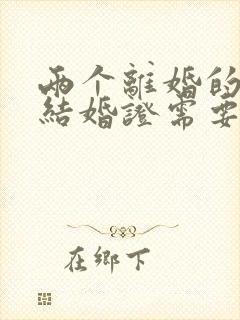 两个離婚的
結婚證需要
在鄉下